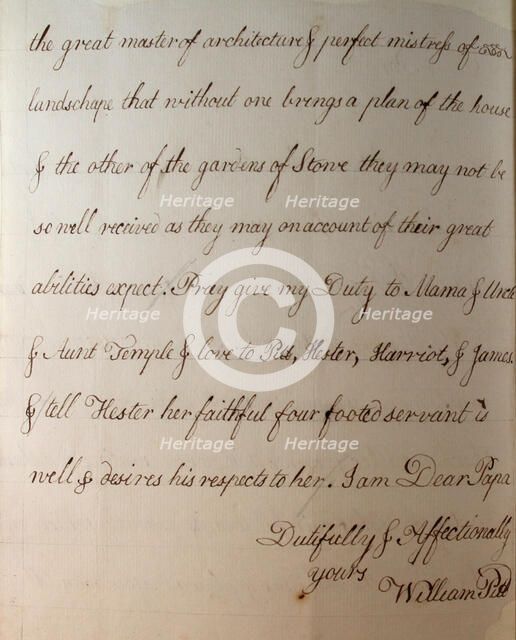 the great master of architecture & perfect mistress of
landschape that without one brings a plan of the house
& the other of the gardens of Stowe they may not be
so well received as they may on account of their great
abilities expect. Pray give my Duty to Mama & Uncle
& Aunt Temple & love to Pitt, Hester, Harriot, & James.
& tell Hester her faithful four footed servant is
well & desires his respects to her. I am Dear Papa
Dutifully & Affectionally
yours
William Pitt
Heritage
Heritage
Heritage
Heritage
Heritage
Heritage
Heritage
Heritage
C